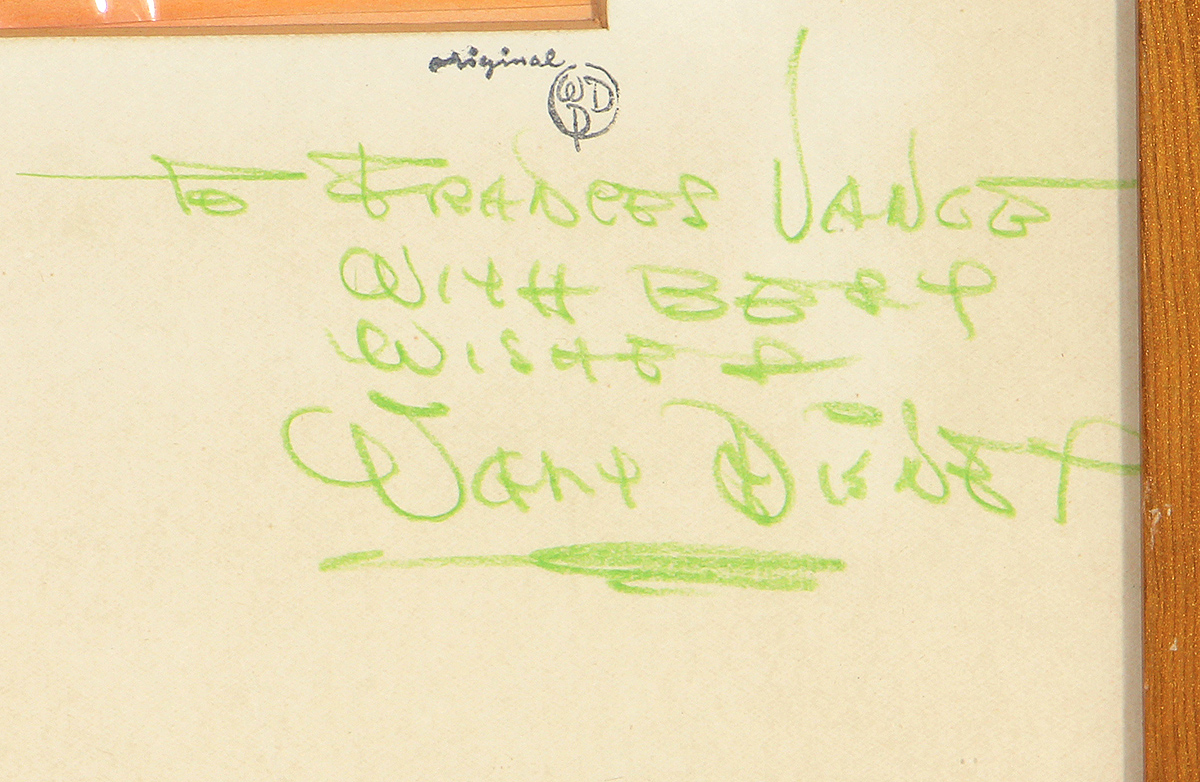 original
WDP
To FRANCES VANCE
WITH BEST
WISHES
WALT DISNEY